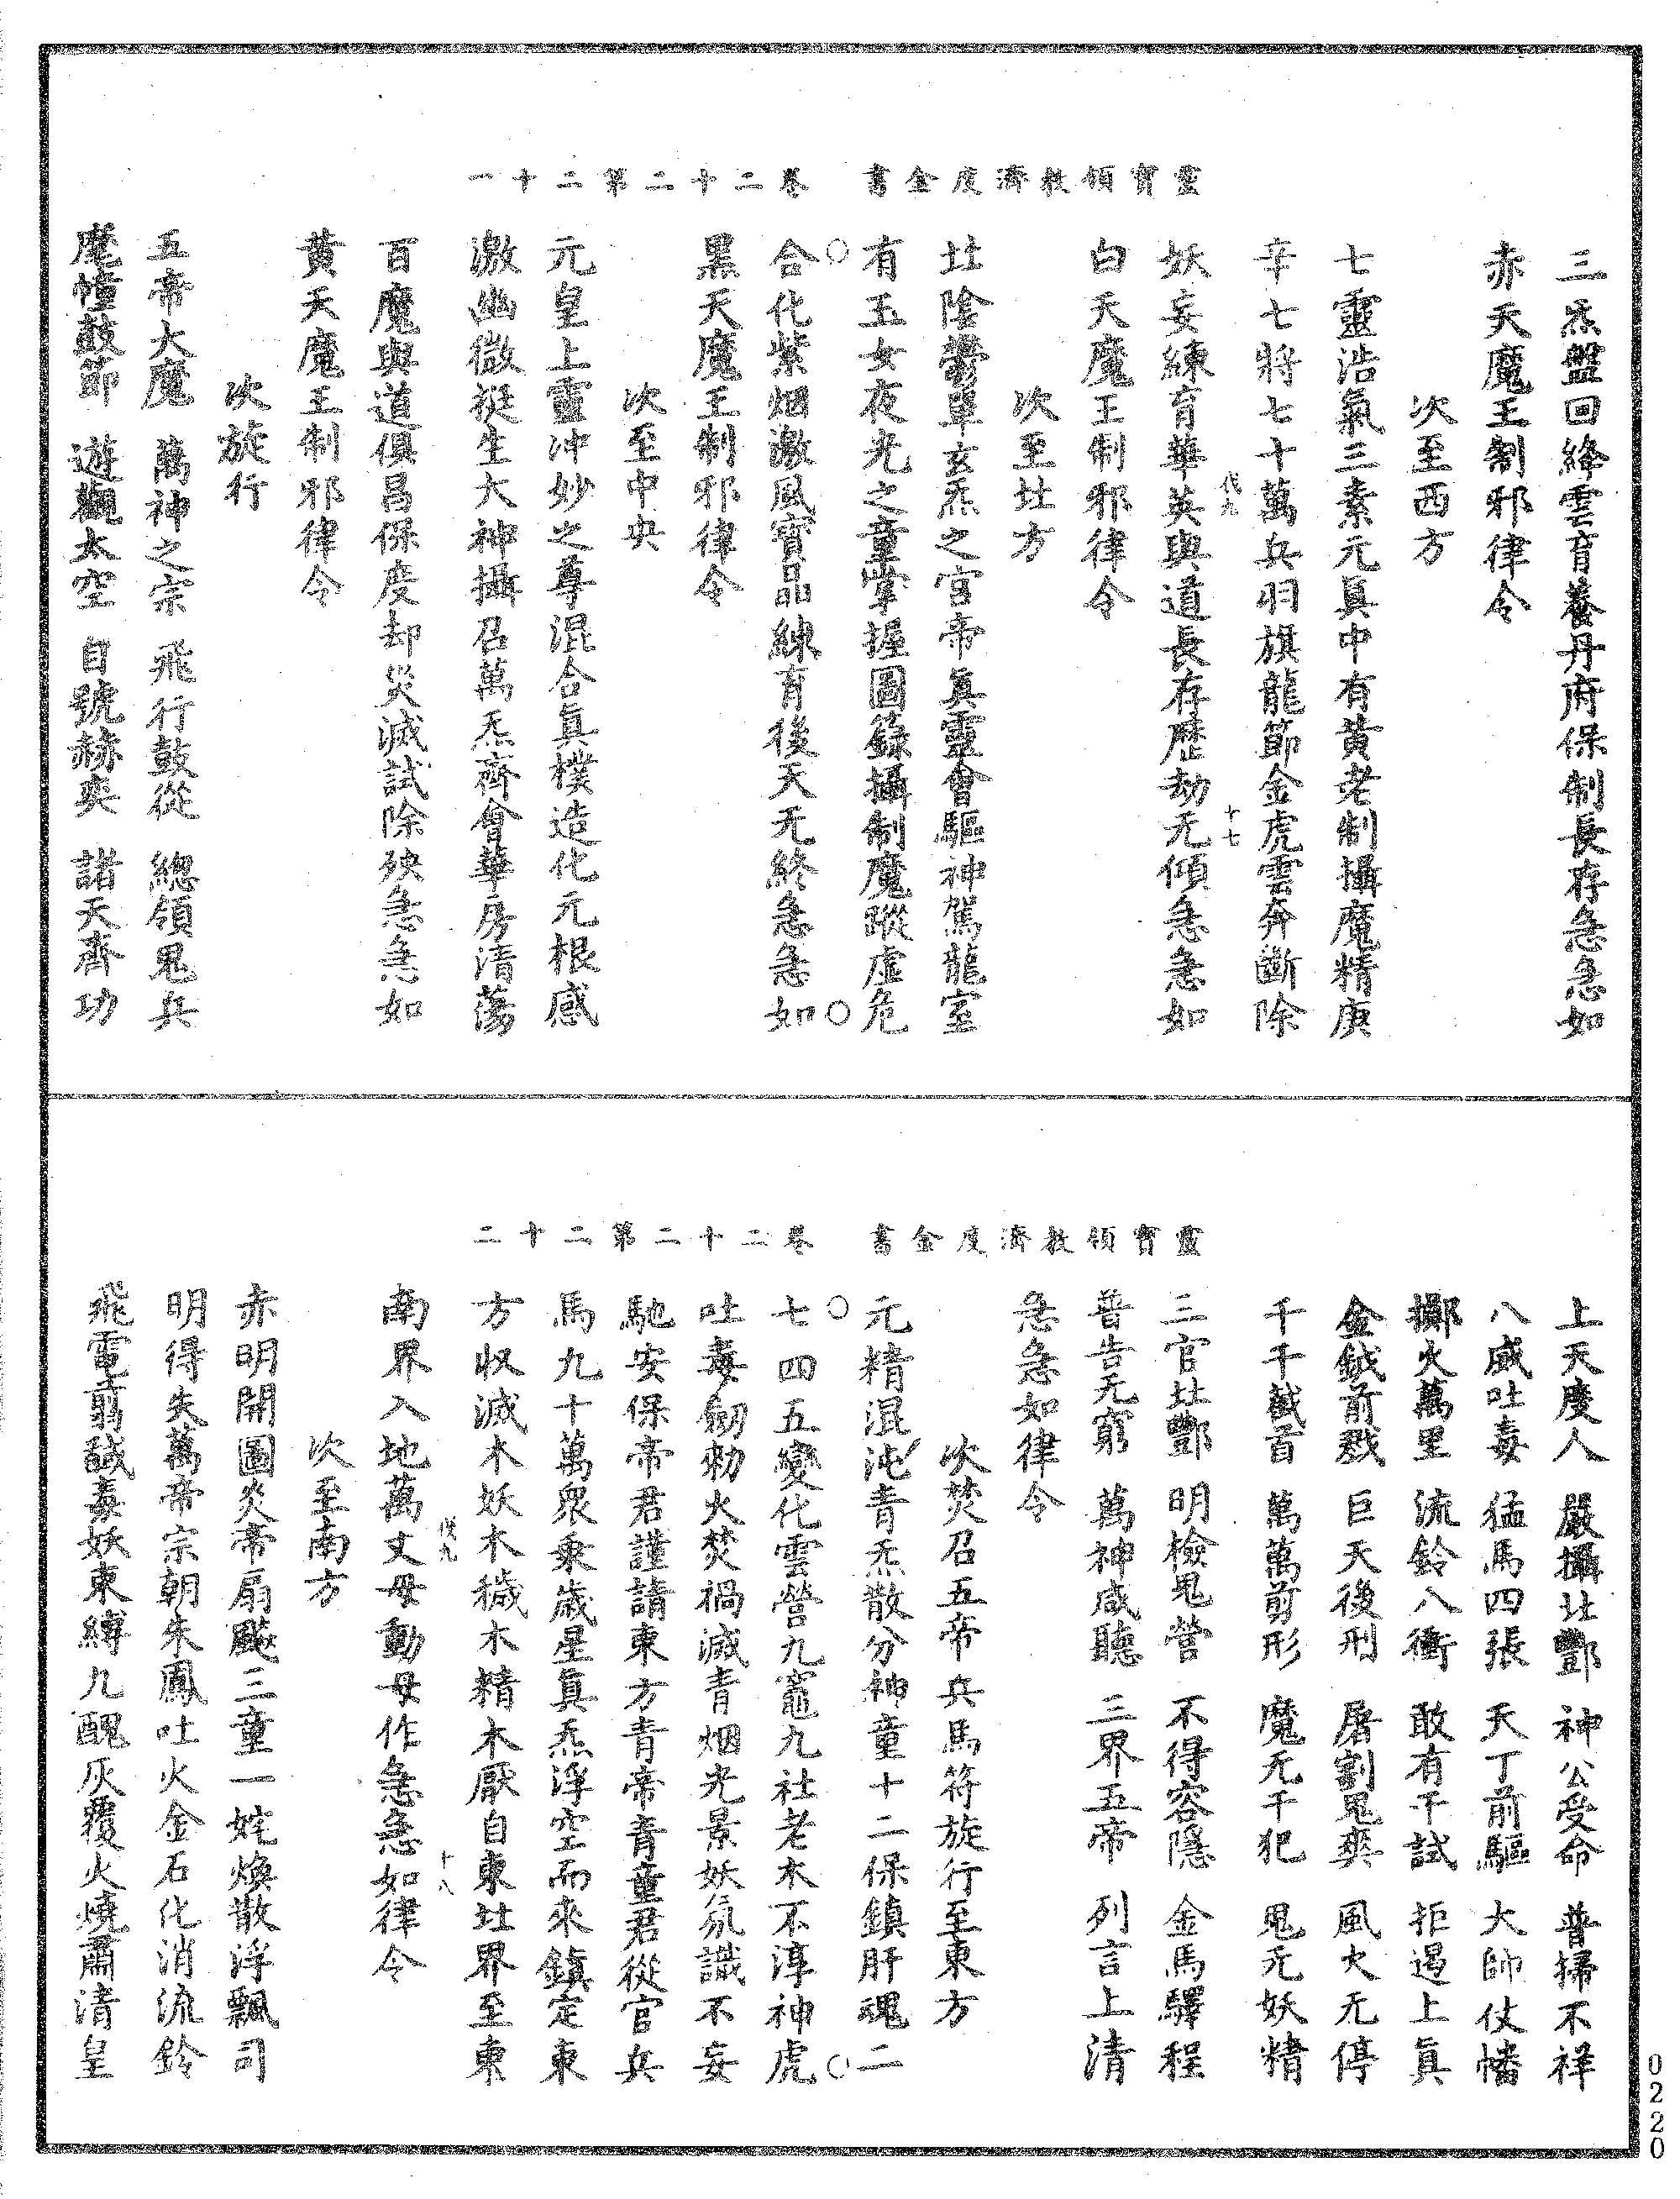 靈寶領教濟度金書 卷二十二第二十一
三炁盤回絳雲育養丹府保制長存急急如
赤天魔王制邪律令
次至西方
七靈浩氣三素元眞中有黃老制攝魔精庚
辛七將七十萬兵羽旗龍節金虎雲奔斷除
伐九 十七
妖妄練育華英與道長存歷劫无傾急急如
白天魔王制邪律令
次至北方
北陰鬱單玄炁之宮帝眞靈會驅神駕龍室
有玉女夜光之童掌握圖籙攝制魔蹤虛危
合化紫烟激風寶品練育後天无終急急如
黑天魔王制邪律令
次至中央
元皇上靈沖妙之尊混合眞樸造化元根感
激幽微挺生大神攝召萬炁齊會華房清蕩
百魔與道俱昌保度却災滅試除殃急急如
黃天魔王制邪律令
次旋行
五帝大魔 萬神之宗 飛行鼓從 總領鬼兵
麾幢鼓節 遊觀太空 自號赫奕 諸天齊功
靈寶領教濟度金書 卷二十二第二十二
上天度人 嚴攝北酆 神公受命 普掃不祥
八威吐毒 猛馬四張 天丁前驅 大帥仗幡
擲火萬里 流鈴八衝 敢有干試 拒遏上眞
金鉞前戮 巨天後刑 屠割鬼爽 風火无停
千千截首 萬萬剪形 魔无干犯 鬼无妖精
三官北酆 明檢鬼營 不得容隱 金馬驛程
普告无窮 萬神咸聽 三界五帝 列言上清
急急如律令
次焚召五帝兵馬符旋行至東方
元精混沌青炁散分神童十二保鎮肝魂二
七四五變化雲營九竈九社老木不淳神虎
吐毒劒勑火焚禍滅青烟光景妖氛識不妄
馳安保帝君謹請東方青帝青童君從官兵
馬九十萬衆乘歲星眞炁浮空而來鎭定東
方收滅木妖木穢木精木厭自東北界至東
伐九 十八
南界入地萬丈毋動毋作急急如律令
次至南方
赤明開圖炎帝扇飈三童一姹煥散浮飄司
明得失萬帝宗朝朱鳳吐火金石化消流鈴
飛電翦馘毒妖束縛九醜灰覆火燒肅清皇
0220